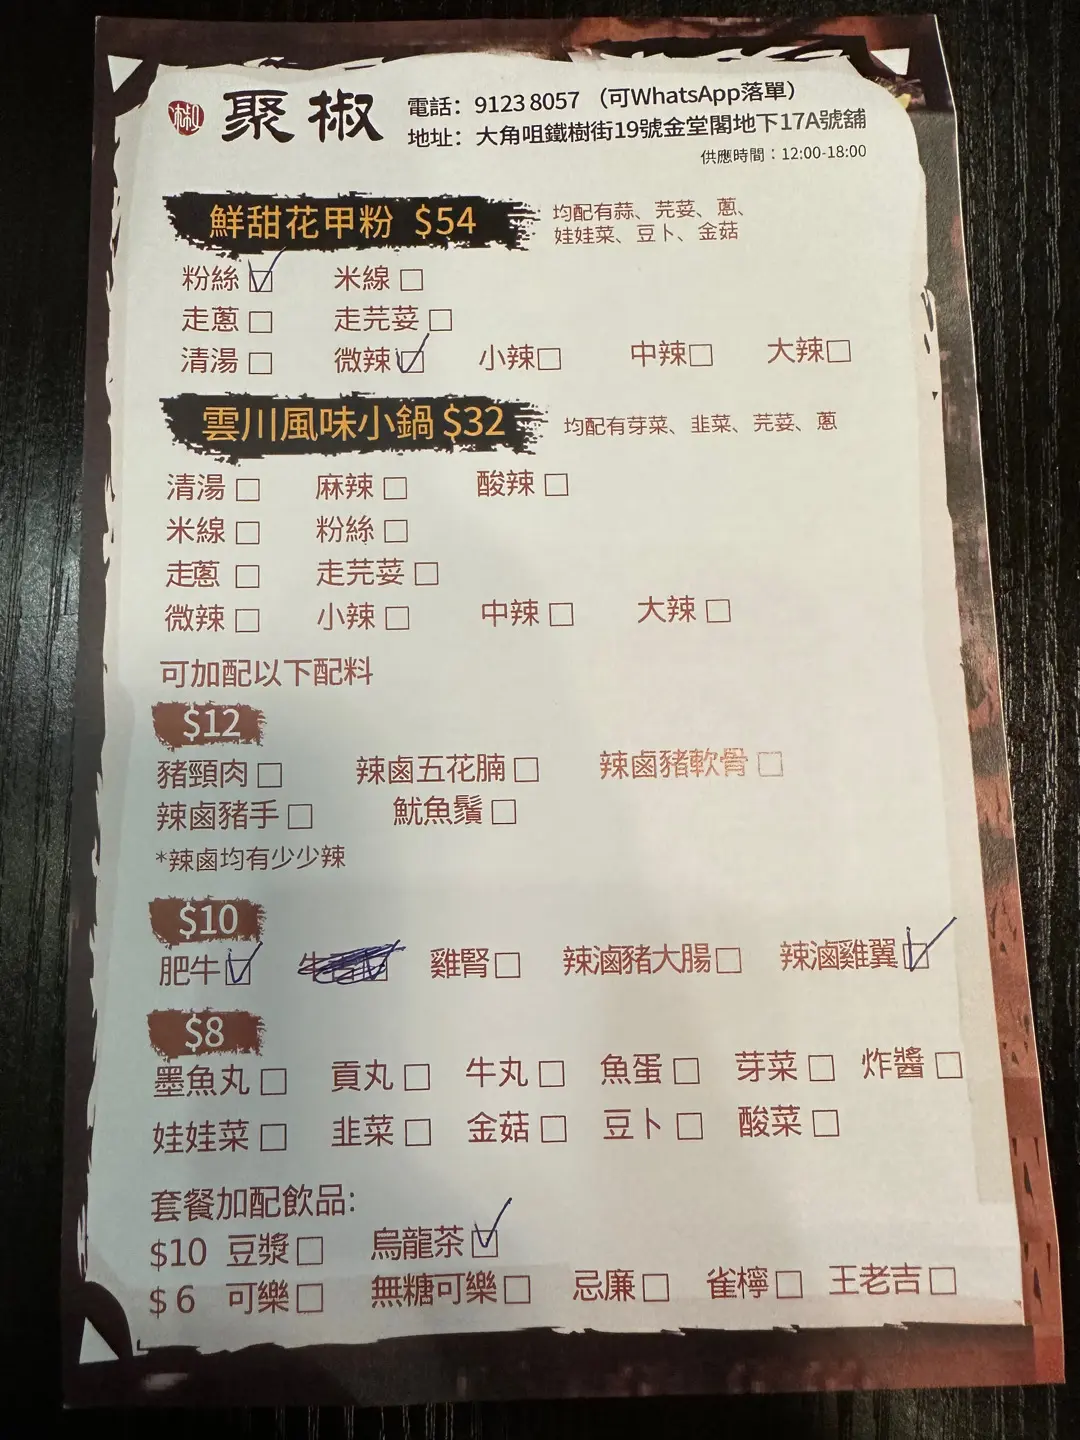 椒 聚椒 電話：9123 8057 （可WhatsApp落單）
地址：大角咀鐵樹街19號金堂閣地下17A號舖
供應時間：12:00-18:00
鮮甜花甲粉 $54 均配有蒜、芫荽、蔥、
娃娃菜、豆卜、金菇
粉絲 ☑ 米線 □
走蔥 □ 走芫荽 □
清湯 □ 微辣 ☑ 小辣 □ 中辣 □ 大辣 □
雲川風味小鍋 $32 均配有芽菜、韭菜、芫荽、蔥
清湯 □ 麻辣 □ 酸辣 □
米線 □ 粉絲 □
走蔥 □ 走芫荽 □
微辣 □ 小辣 □ 中辣 □ 大辣 □
可加配以下配料
$12
豬頸肉 □ 辣鹵五花腩 □ 辣鹵豬軟骨 □
辣鹵豬手 □ 魷魚鬚 □
*辣鹵均有少少辣
$10
肥牛 ☑ 牛 雞腎 □ 辣滷豬大腸 □ 辣滷雞翼 ☑
$8
墨魚丸 □ 貢丸 □ 牛丸 □ 魚蛋 □ 芽菜 □ 炸醬 □
娃娃菜 □ 韭菜 □ 金菇 □ 豆卜 □ 酸菜 □
套餐加配飲品:
$10 豆漿 □ 烏龍茶 ☑
$6 可樂 □ 無糖可樂 □ 忌廉 □ 雀檸 □ 王老吉 □